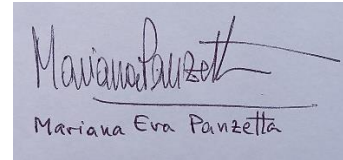 Mariana Panzett
Mariana Eva Panzetta